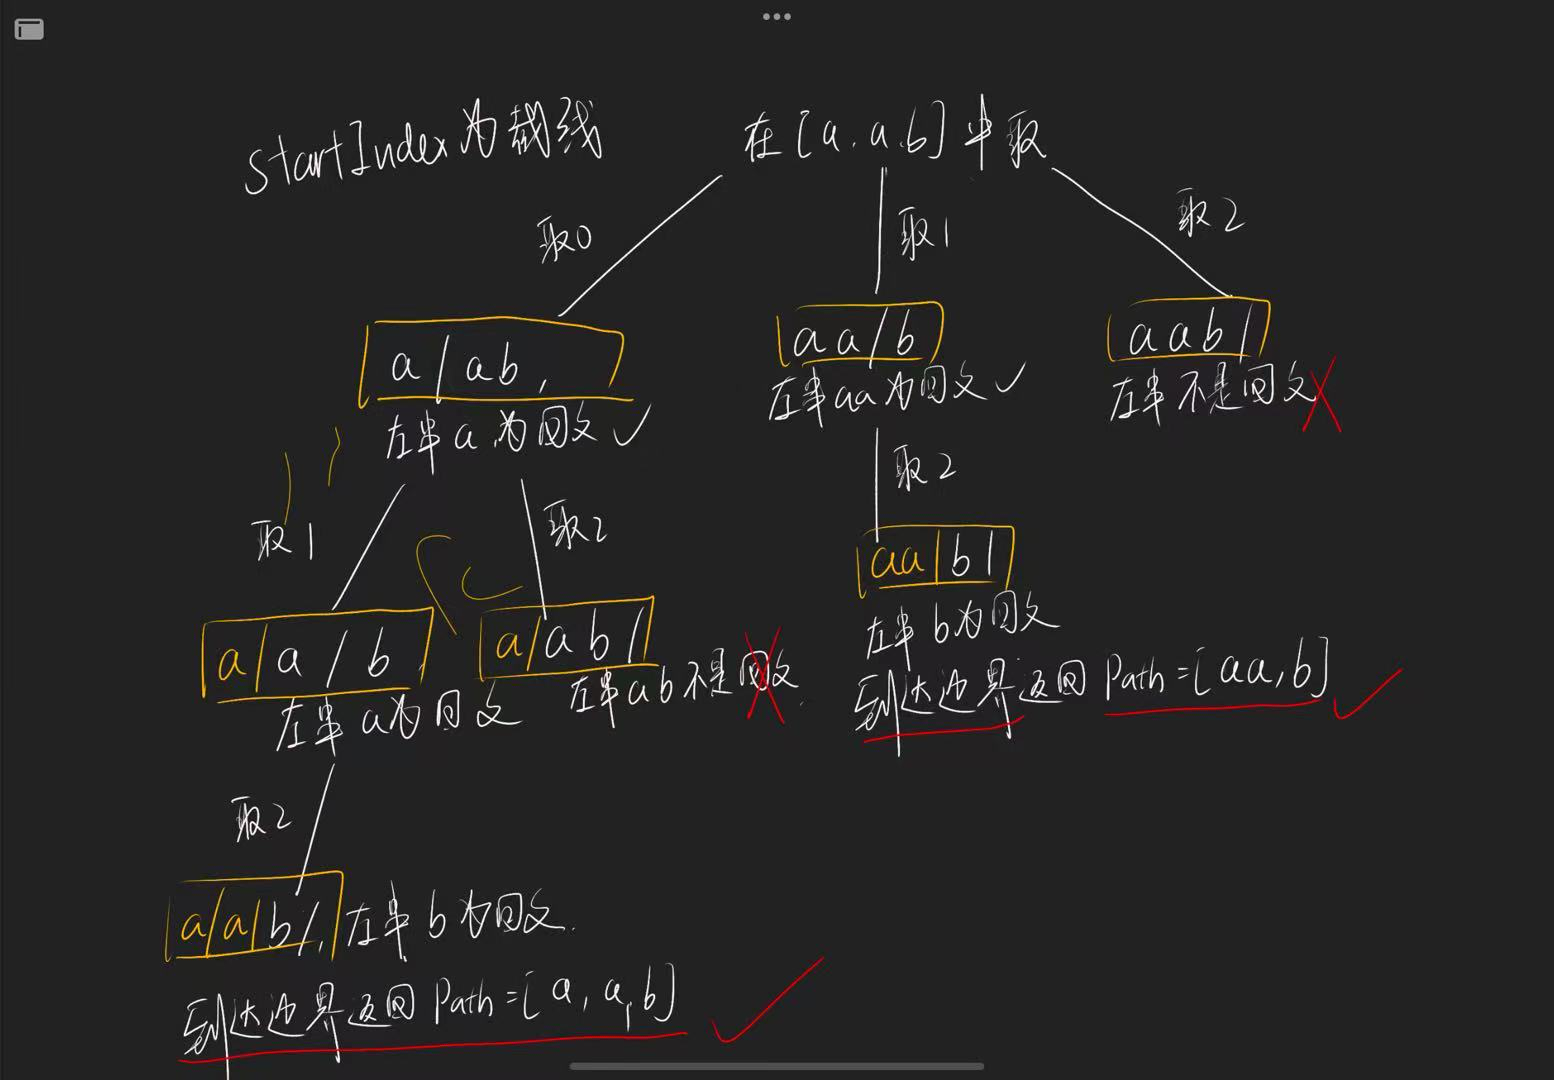 startIndex为截线
在[a.a.b]中取
取0
取1
取2
a/ab,
左半a为回文✓
aa/b
左半aa为回文✓
aab/
左半不是回文
取1
取2
取2
a/a/b
左半a为回文
a/ab/
左半ab不是回文
aa|b|
左半b为回文
到达边界返回 Path=[aa,b]
取2
a/a/b/,左半b为回文.
到达边界返回 Path=[a,a,b]